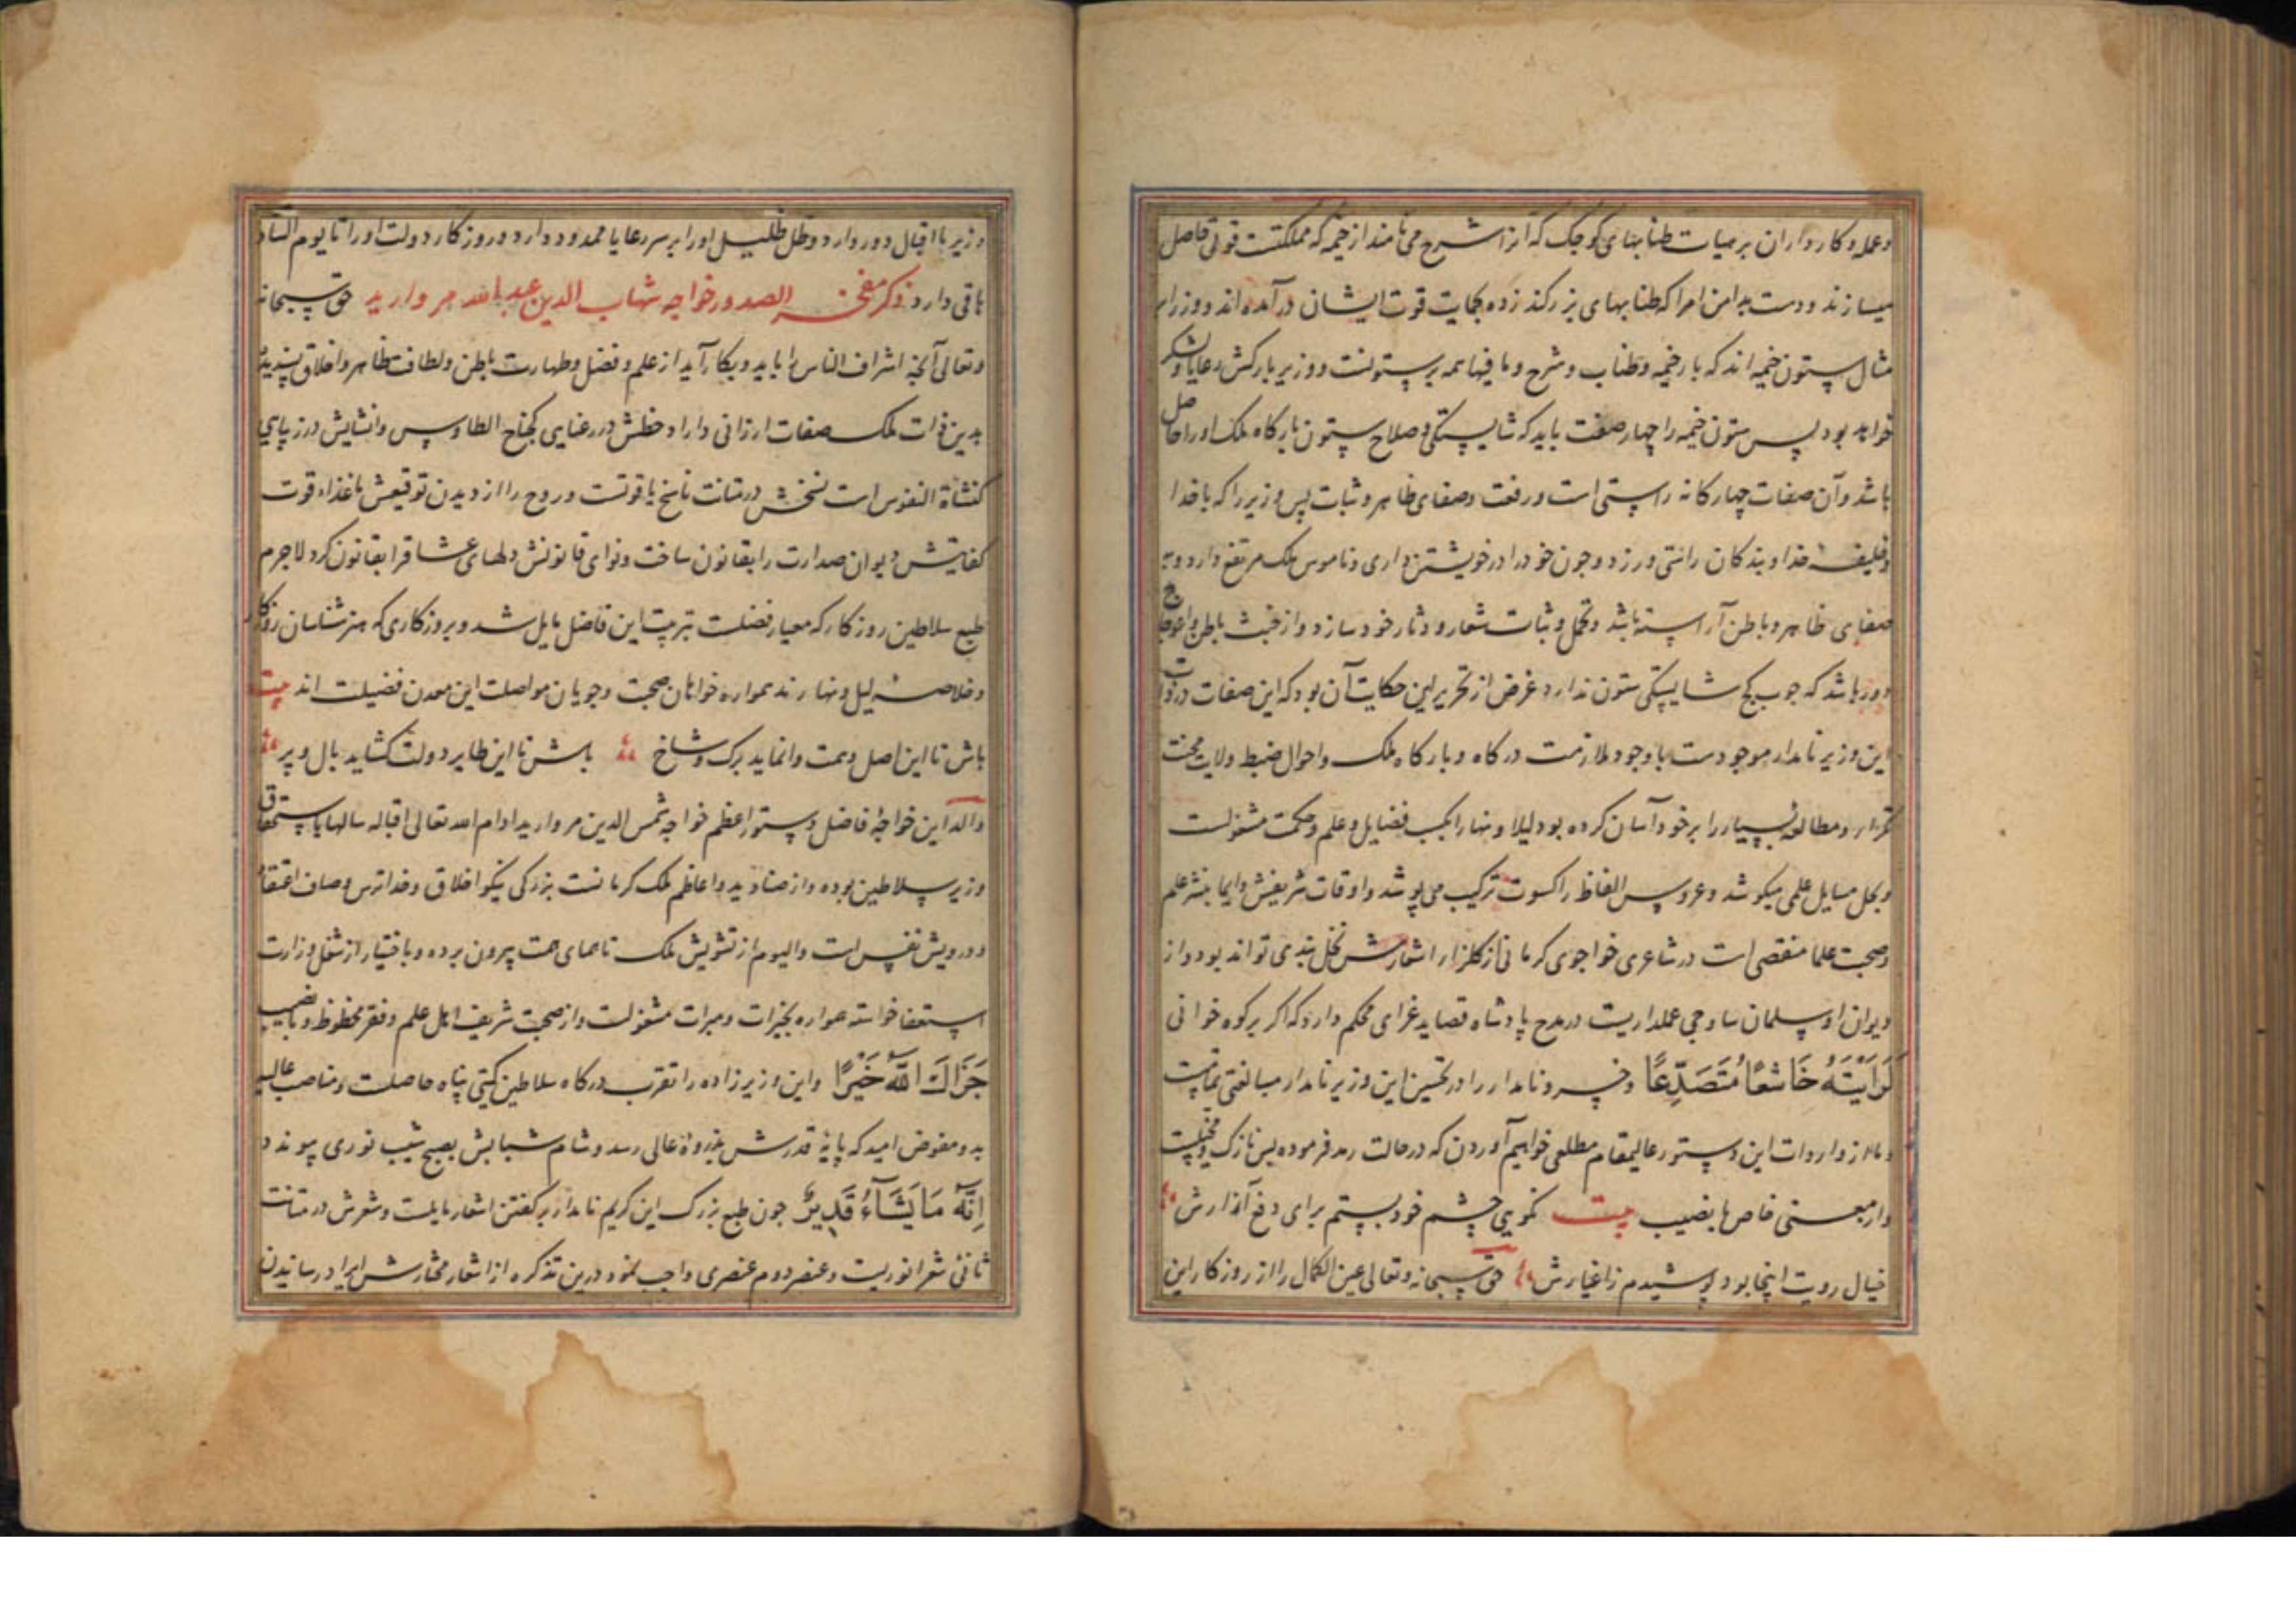 وعمله وکارداران بر مثیات طنابهای کوچک که آنرا شرج می نامند از خیمه که مملکتت قوتی حاصل
میسازند ودست بدامن امرا که طنابهای بزرکند زده بحمایت قوت ایشان درآمده اند ووزرا بر
مثال ستون خیمه اند که بار خیمه وطناب وشرج وما فیها همه بر ستونست ووزیر بارکش رعایا ولشکر
خواهد بود پس ستون خیمه را چهار صفت باید که شایستکی وصلاح ستون بارکاه ملک اورا حاصل
باشد وآن صفات چهارکانه راستی است ورفعت وصفای ظاهر وثبات پس وزیر را که با خدا
وخلیفه خدا وبندکان راستی ورزد وچون خود را در خویشتن داری وناموس ملک مرتفع دارد وبه
صفای ظاهر وباطن آراسته باشد وتحمل وثبات شعار ودثار خود سازد واز خبث باطن واعوجاج
دور باشد که چوب کج شایستکی ستون ندارد غرض از تحریر این حکایت آن بود که این صفات در ذات
این وزیر نامدار موجودست با وجود ملازمت درکاه وبارکاه ملک واحوال ضبط ولایت محنت
تکرار ومطالعه بسیار را بر خود آسان کرده بود لیلا ونهارا بکسب فضایل وعلم وحکمت مشغولست
وبحل مسایل علمی میکوشد وعروس الفاظ را کسوت ترکیب می پوشد واوقات شریفش دایما بنشر علم
وصحبت علما منقضی است در شاعری خواجوی کرمانی از کلزار اشعارش نخل بندی تواند بود واز
دیوان او سلمان ساوجی عملداریست در مدح پادشاه قصاید غرای محکم دارد که اکر بر کوه خوانی
لَرَاَیْتَهُ خَاشِعًا مُتَصَدِّعًا وخسرو نامدار را در تحسین این وزیر نامدار مبالغتی تمامست
وما از واردات این دستور عالیمقام مطلعی خواهیم آوردن که در حالت رمد فرموده بس نازک ومخیلست
واز معنی خاص با نصیب بیت نکویی چشم خود بستم برای دفع آزارش
خیال رویت اینجا بود پوشیدم ز اغیارش حق سبحانه وتعالی عین الکمال را از روزکار این
وزیر با اقبال دور دارد وظل ظلیل اورا بر سر رعایا ممدود دارد وروزکار دولت اورا تا یوم التناد
باقی دارد ذکر مفخر الصدور خواجه شهاب الدین عبدالله مروارید حق سبحانه
وتعالی آنچه اشراف الناس را باید وبکار آید از علم وفضل وطهارت باطن ولطافت ظاهر واخلاق پسندیده
بدین ذات ملک صفات ارزانی دارد وخطش در رعنایی کجناح الطاوس وانشایش در زیبایی
کنشاة النفوس است نسخش در متانت ناسخ یاقوتست وروح را از دیدن توقیعش با غذاء قوت
کفایتش دیوان صدارت را بقانون ساخت ونوای قانونش دلهای عشاق را بقانون کرد لاجرم
طبع سلاطین روزکار که معیار فضلست بتربیت این فاضل مایل شد وبروزکاری که هنرشناسان روزکار
وخلاصه لیل ونهارند همواره خواهان صحبت وجویان مواصلت این معدن فضیلت اند بیت
باش تا این اصل وهمت وانماید برک وشاخ باش تا این طایر دولت کشاید بال وپر
والد این خواجهٔ فاضل دستور اعظم خواجه شمس الدین مروارید ادام الله تعالی اقباله سالها باستحقاق
وزیر سلاطین بوده واز صنادید واعاظم ملک کرمانست بزرکی نیکو اخلاق وخداترس وصاف اعتقاد
ودرویش نفس است والیوم از تشویش ملک همای همت بیرون برده وباختیار از شغل وزارت
استعفا خواسته همواره بخیرات ومبرات مشغولست واز صحبت شریف اهل علم وفقر محظوظ وبا نصیب
جَزَاکَ اللهُ خَیْرًا واین وزیرزاده را تقرب درکاه سلاطین کیتی پناه حاصلست ومناصب عالیه
بدو مفوض امید که پایهٔ قدرش بذروهٔ عالی رسد وشام شبابش بصبح شیب نوری پیوندد
اِنَّهُ مَا یَشَآءُ قَدِیرٌ چون طبع بزرک این کریم نامدار بر کفتن اشعار مایلست وشعرش در متانت
ثانئ شعر انوریست وعنصر دوم عنصری واجب نمود درین تذکره از اشعار مختارش ایراد رسانیدن